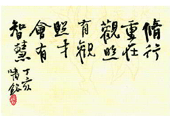 脩行
重在
觀照
有觀
照才
會有
智慧
丁亥